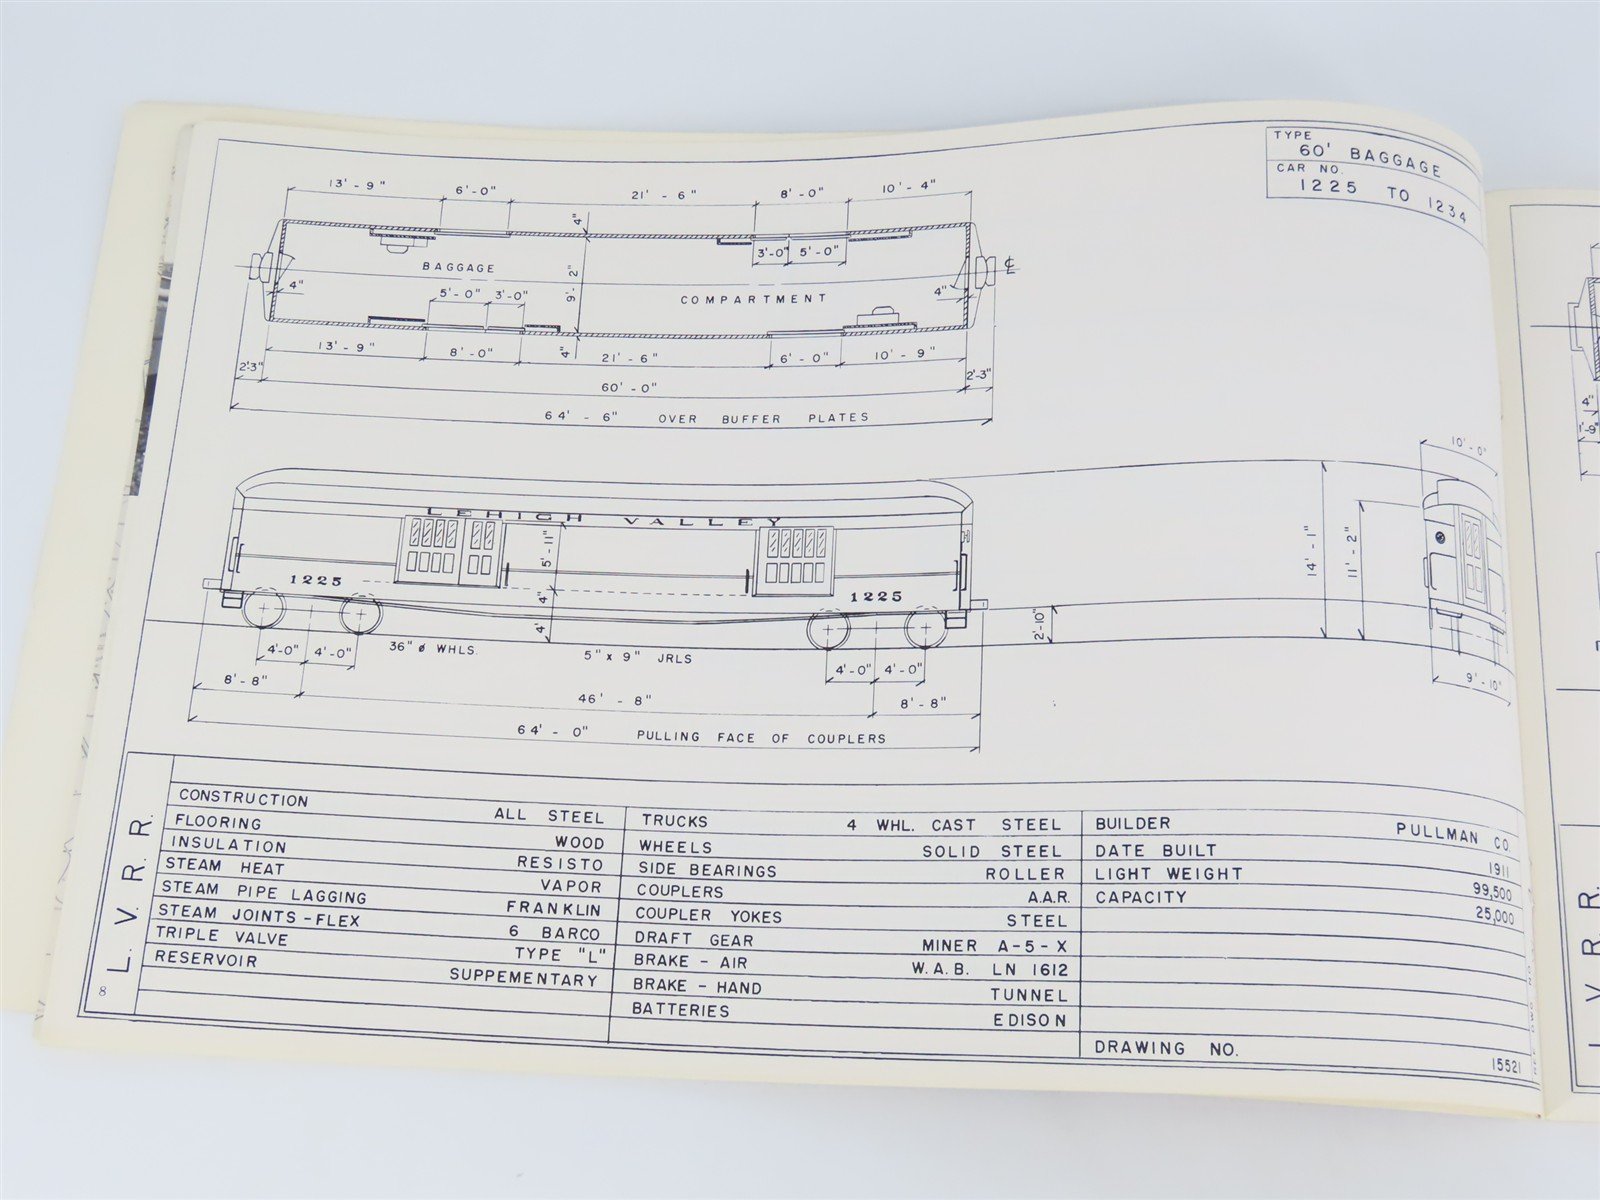 TYPE
60' BAGGAGE
CAR NO.
1225 TO 1234
13'-9" 6'-0" 21'-6" 8'-0" 10'-4"
4"
3'-0" 5'-0"
BAGGAGE
9'-2"
℄
4" 5'-0" 3'-0" COMPARTMENT 4"
13'-9" 8'-0" 4" 21'-6" 6'-0" 10'-9"
2'3" 60'-0" 2'-3"
64'-6" OVER BUFFER PLATES
10'-0"
LEHIGH VALLEY
5'-11" 14'-1" 11'-2"
1225 1225
4" 4' 2'-10"
4'-0" 4'-0" 36" ø WHLS. 5" x 9" JRLS 4'-0" 4'-0"
9'-10"
8'-8" 46'-8" 8'-8"
64'-0" PULLING FACE OF COUPLERS
L.V.R.R.
CONSTRUCTION ALL STEEL
FLOORING WOOD
INSULATION RESISTO
STEAM HEAT VAPOR
STEAM PIPE LAGGING FRANKLIN
STEAM JOINTS-FLEX 6 BARCO
TRIPLE VALVE TYPE "L"
RESERVOIR SUPPEMENTARY
TRUCKS 4 WHL. CAST STEEL
WHEELS SOLID STEEL
SIDE BEARINGS ROLLER
COUPLERS A.A.R.
COUPLER YOKES STEEL
DRAFT GEAR MINER A-5-X
BRAKE - AIR W.A.B. LN 1612
BRAKE - HAND TUNNEL
BATTERIES EDISON
BUILDER PULLMAN CO.
DATE BUILT 1911
LIGHT WEIGHT 99,500
CAPACITY 25,000
DRAWING NO. 15521
8
4"
1'-9"
L.V.R.R.